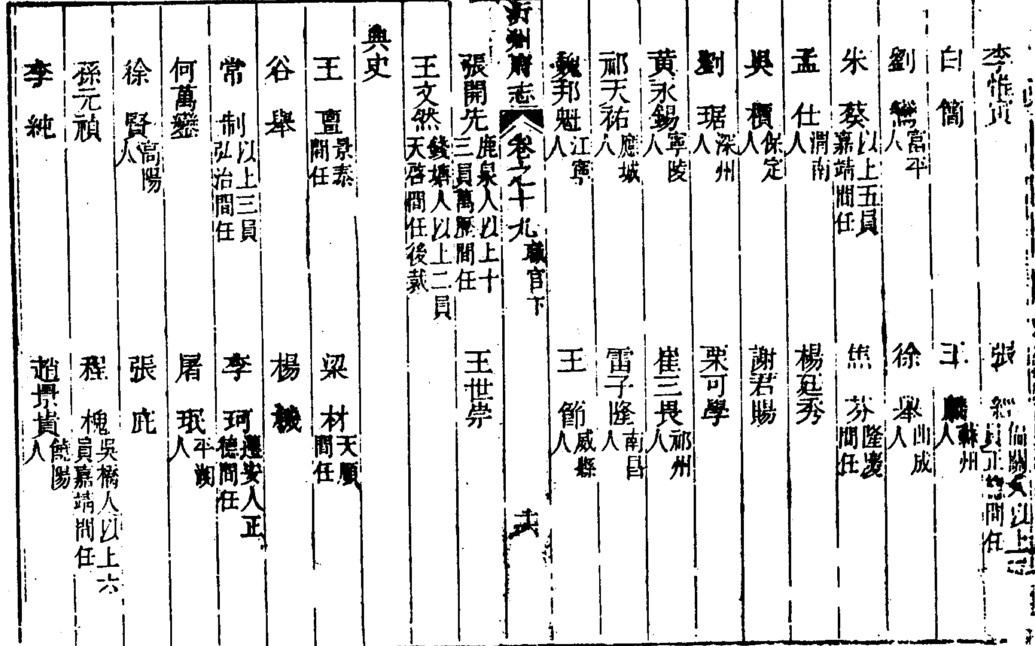 李惟寅 張經 偏關人以上
員正德間任
白簡 王 蘇州人
劉鸞 富平人 徐舉 曲成人
朱蔡 以上五員嘉靖間任 焦芬 隆慶間任
孟仕 渭南人 楊廷秀
吳檟 保定人 謝君賜
劉琚 深州人 栗可學
黃永錫 寧陵人 崔三畏 祁州人
祁天祐 應城人 雷子隆 南昌人
魏邦魁 江寧人 王節 威縣人
沂州府志 卷之十九 職官下
張開先 鹿泉人以上十三員萬曆間任 王世崇
王文然 錢塘人以上二員天啓間任後裁
典史
王亶 景泰間任 梁材 天順間任
谷舉 楊機
常制 以上三員弘治間任 李珂 遷安人正德間任
何萬鑾 屠珉 平湖人
徐賢 高陽人 張庇
孫元禎 程槐 吳橋人以上六員嘉靖間任
李純 趙景貴 饒陽人